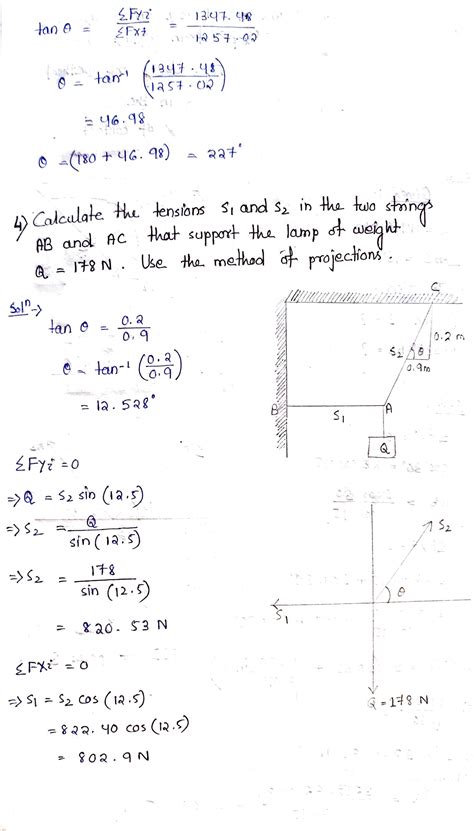 tan θ = ΣFyi / ΣFxi = 1347.48 / 1257.02
θ = tan⁻¹ (1347.48 / 1257.02)
= 46.98
θ = (180 + 46.98) = 227°
4) Calculate the tensions S₁ and S₂ in the two strings
AB and AC that support the lamp of weight
Q = 178 N. Use the method of projections.
Solⁿ→
tan θ = 0.2 / 0.9
θ = tan⁻¹ (0.2 / 0.9)
= 12.528°
C
0.2 m
S₂
θ
0.9m
B
A
S₁
Q
ΣFyi = 0
⇒ Q = S₂ sin (12.5)
⇒ S₂ = Q / sin (12.5)
⇒ S₂ = 178 / sin (12.5)
= 820.53 N
ΣFxi = 0
⇒ S₁ = S₂ cos (12.5)
= 822.40 cos (12.5)
= 802.9 N
S₂
θ
S₁
Q = 178 N